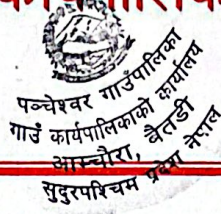 पञ्चेश्वर गाउँपालिका
गाउँ कार्यपालिकाको कार्यालय
आमचौरा, बैतडी
सुदुरपश्चिम प्रदेश नेपाल